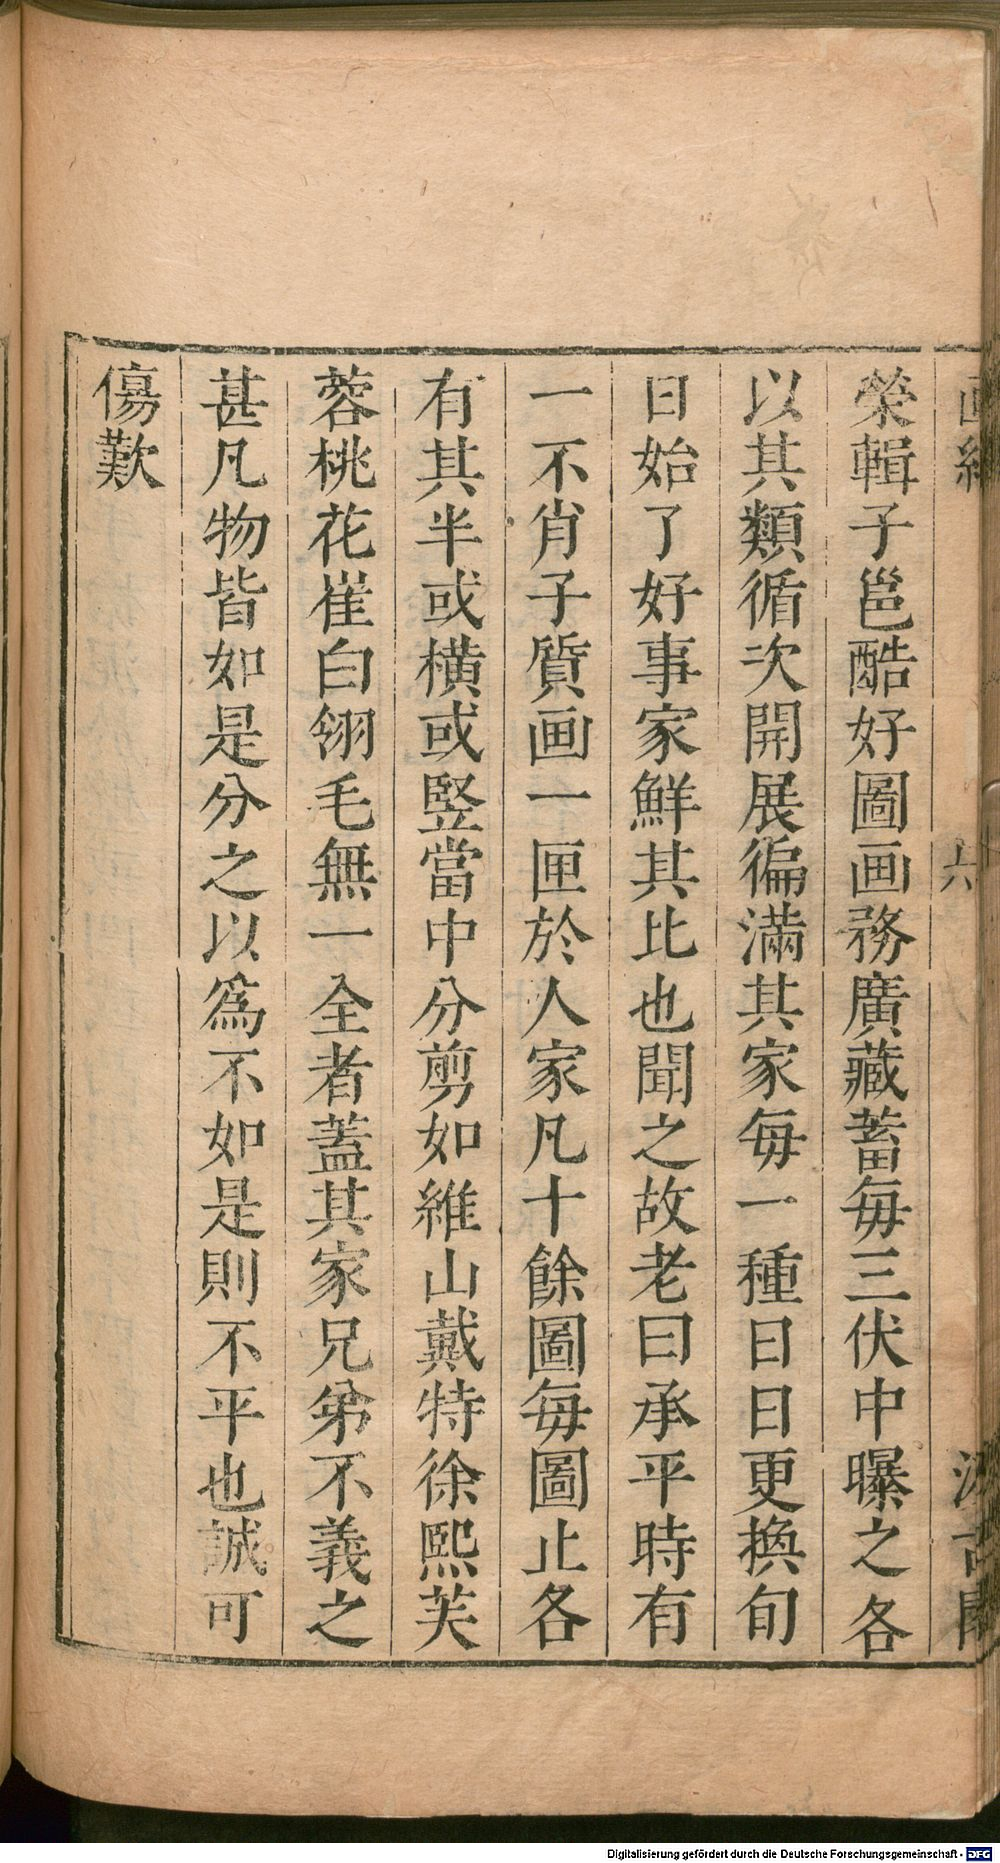 榮輯子邕酷好圖画務廣藏蓄每三伏中曝之各
以其類循次開展徧滿其家每一種日日更換旬
日始了好事家鮮其比也聞之故老曰承平時有
一不肖子質画一匣於人家凡十餘圖每圖止各
有其半或橫或竪當中分剪如維山戴特徐熙芙
蓉桃花崔白翎毛無一全者蓋其家兄弟不義之
甚凡物皆如是分之以爲不如是則不平也誠可
傷歎
六
Digitalisierung gefördert durch die Deutsche Forschungsgemeinschaft - DFG